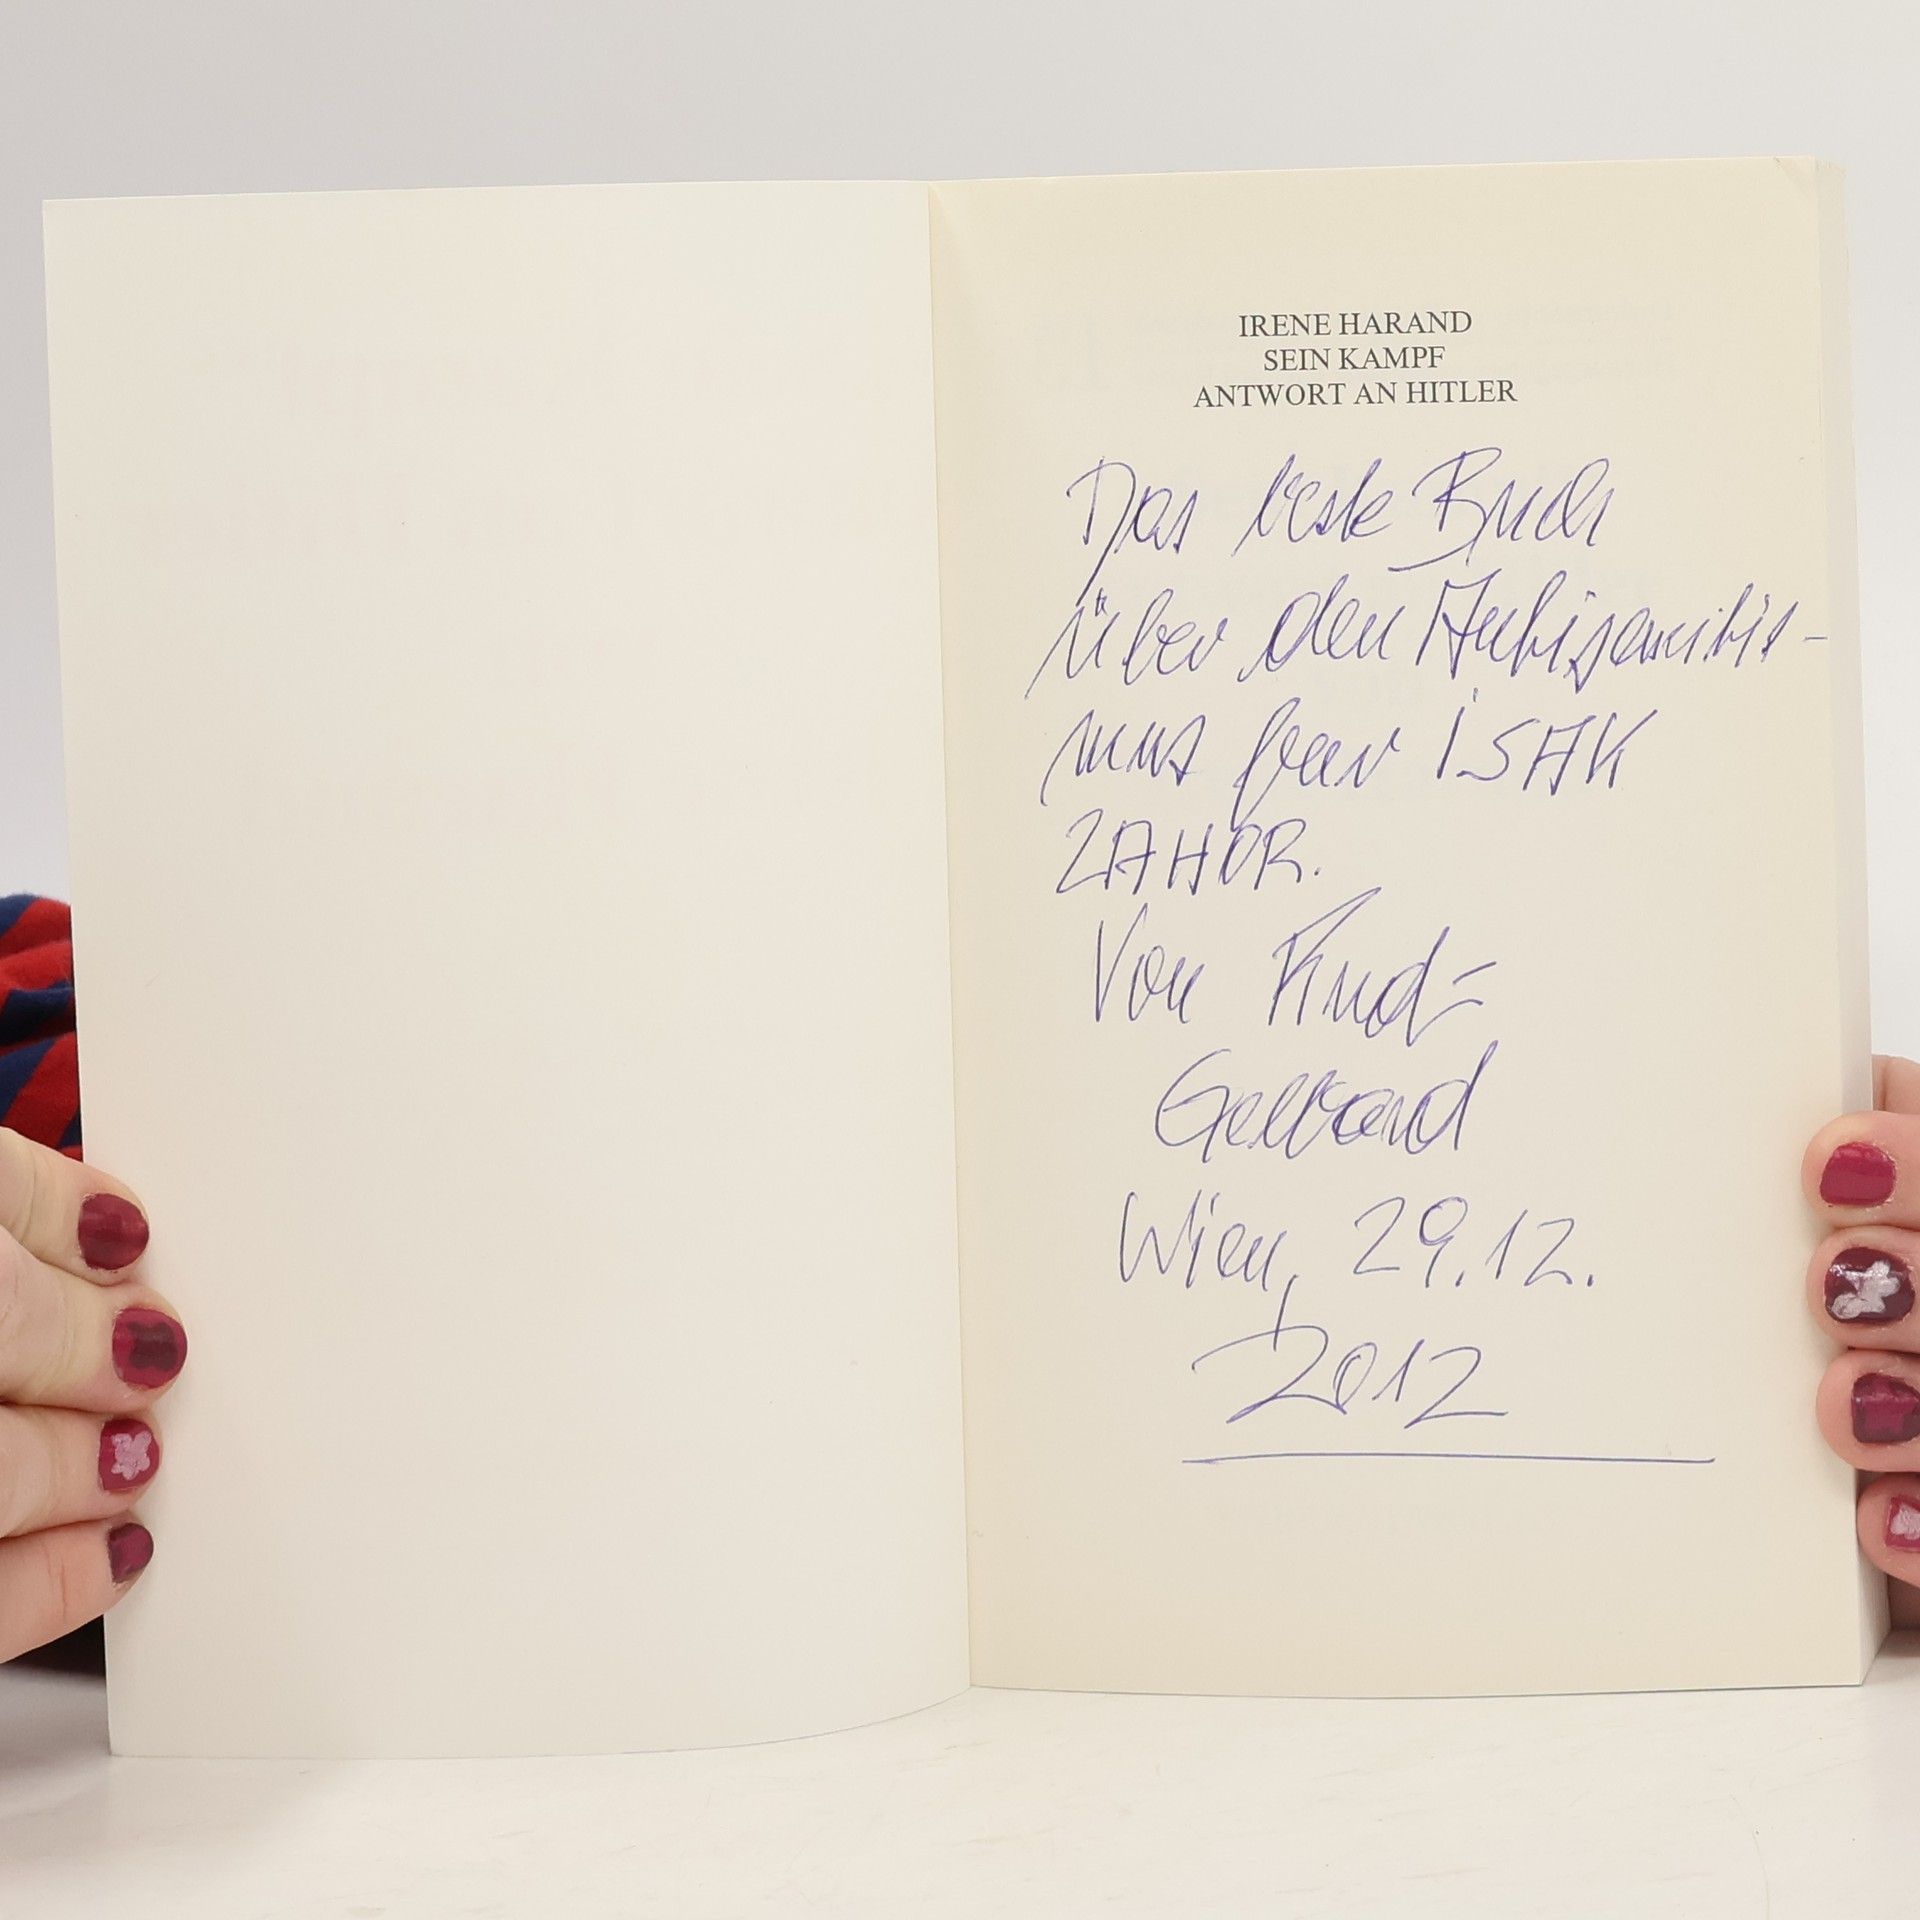 IRENE HARAND
SEIN KAMPF
ANTWORT AN HITLER
Das beste Buch
über den Antisemitis-
mus
ISAK
ZAHOR.
Von
Gelbard
Wien, 29.12.
2012